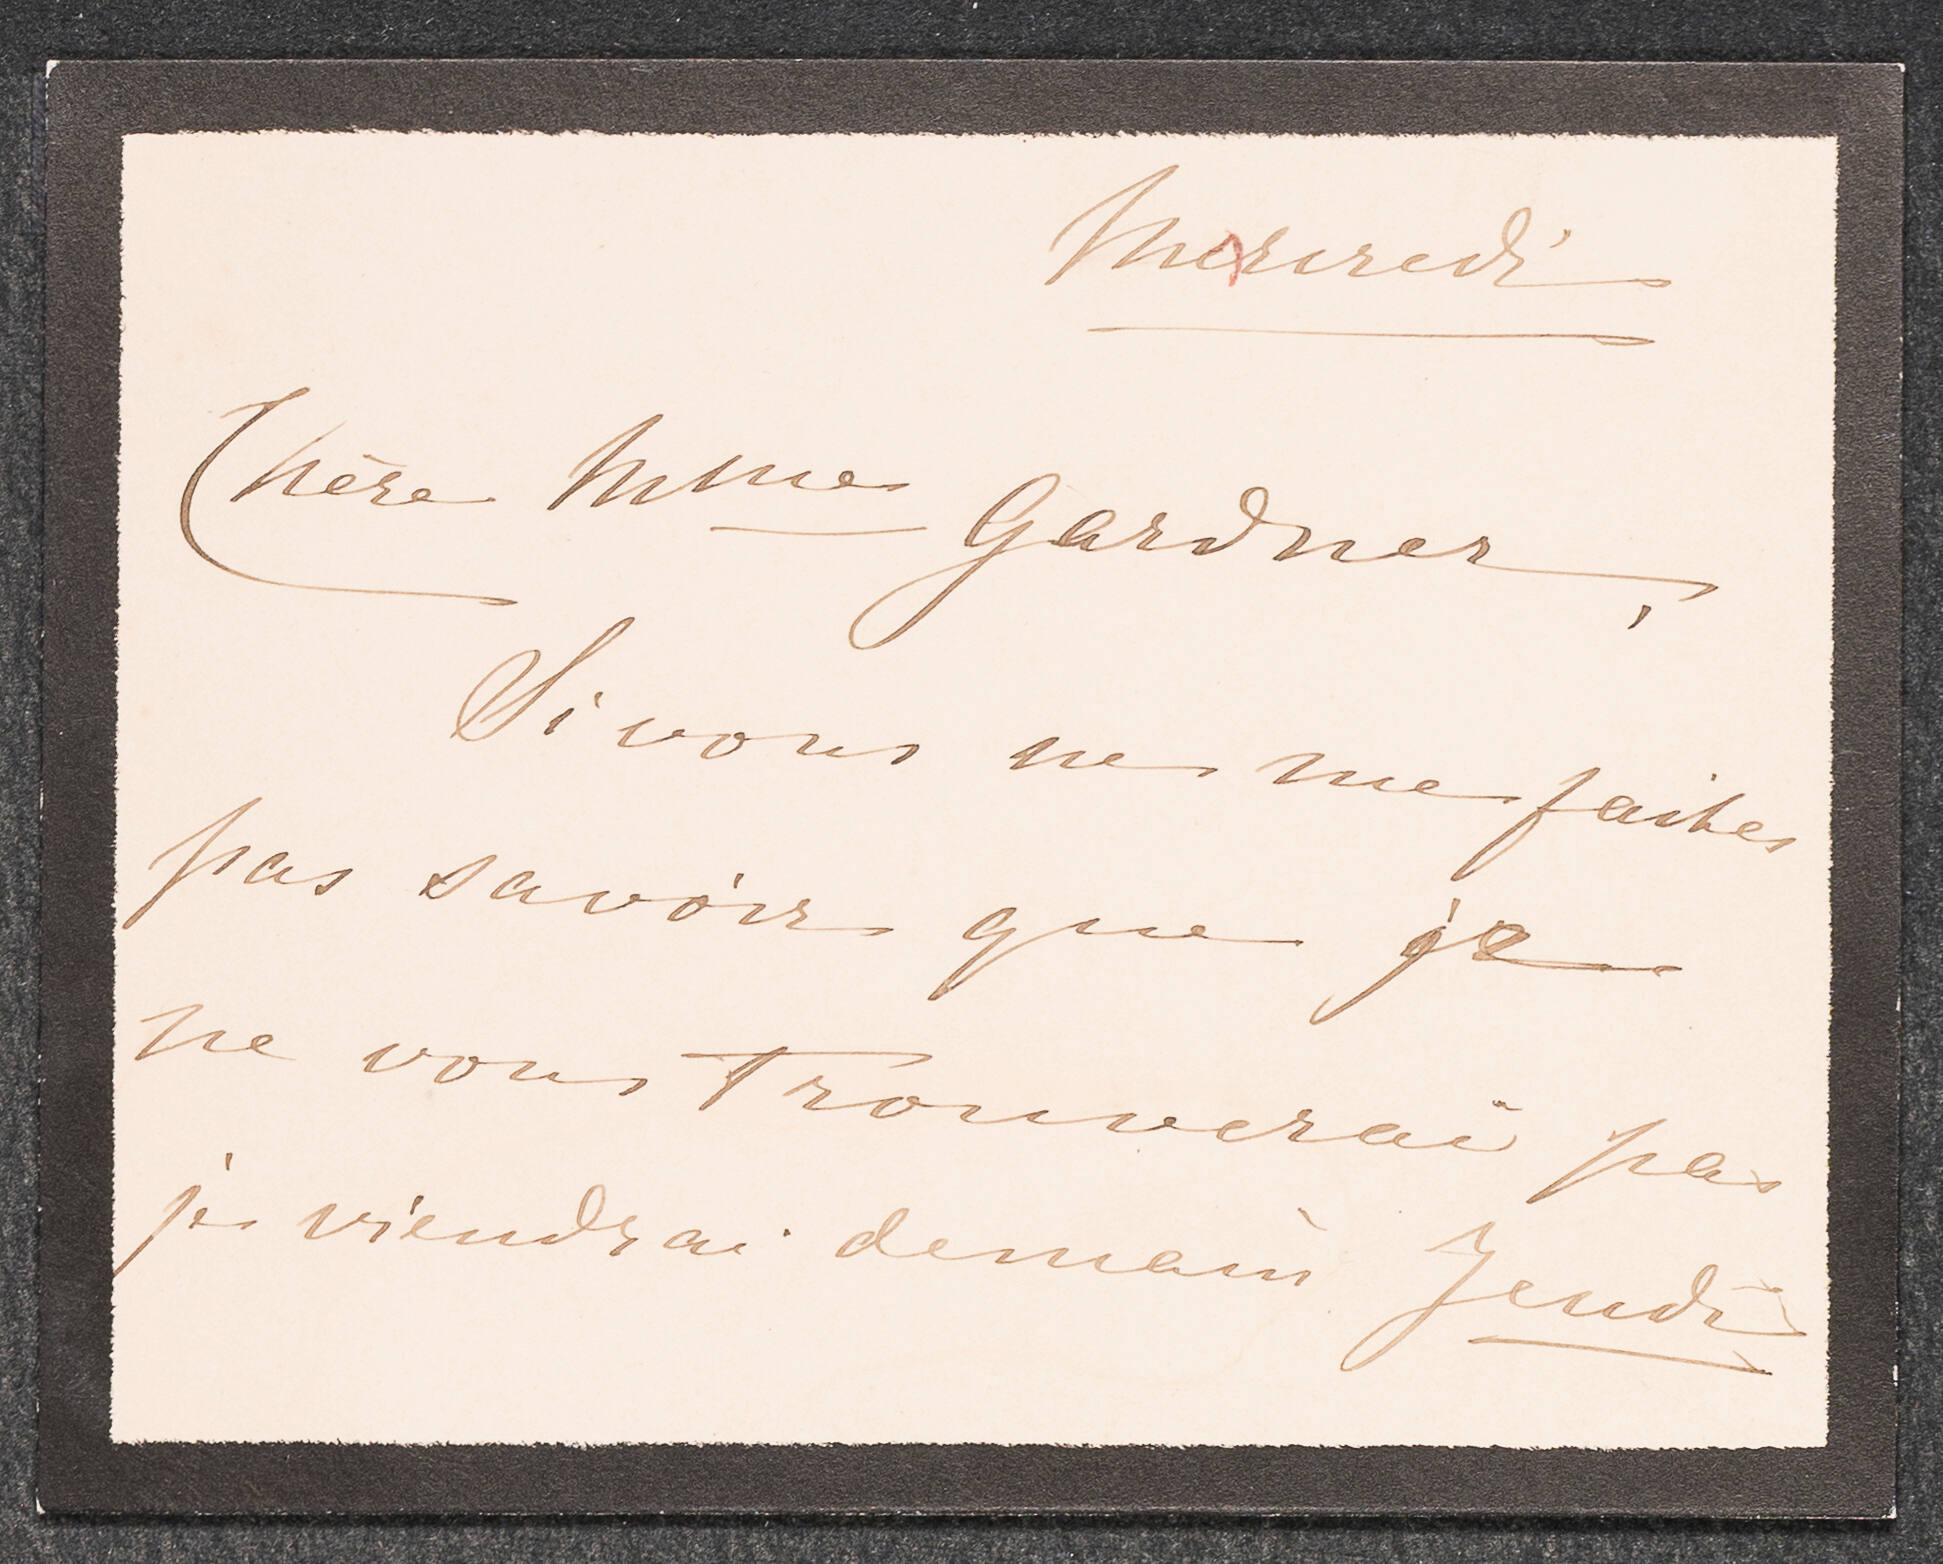 Mercredi
Chère Mme Gardner,
Si vous ne me faites
pas savoir que je
ne vous trouverai pas
je viendrai demain Jeudi